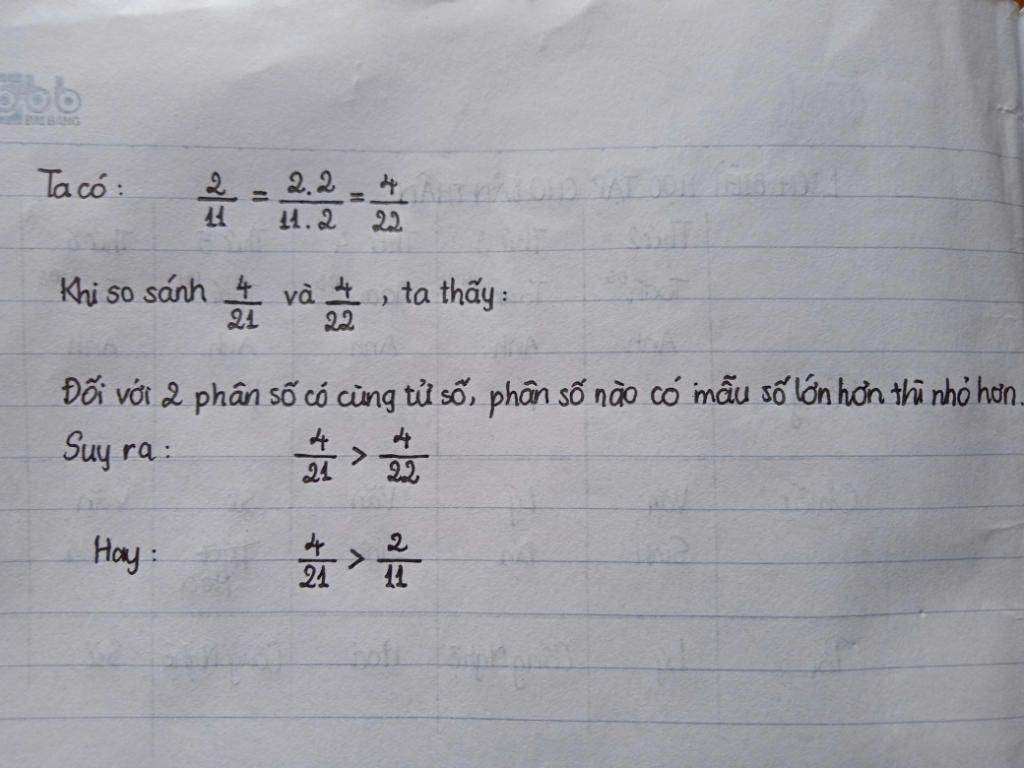 Ta có: 2/11 = 2.2/11.2 = 4/22
Khi so sánh 4/21 và 4/22, ta thấy:
Đối với 2 phân số có cùng tử số, phân số nào có mẫu số lớn hơn thì nhỏ hơn.
Suy ra: 4/21 > 4/22
Hay: 4/21 > 2/11